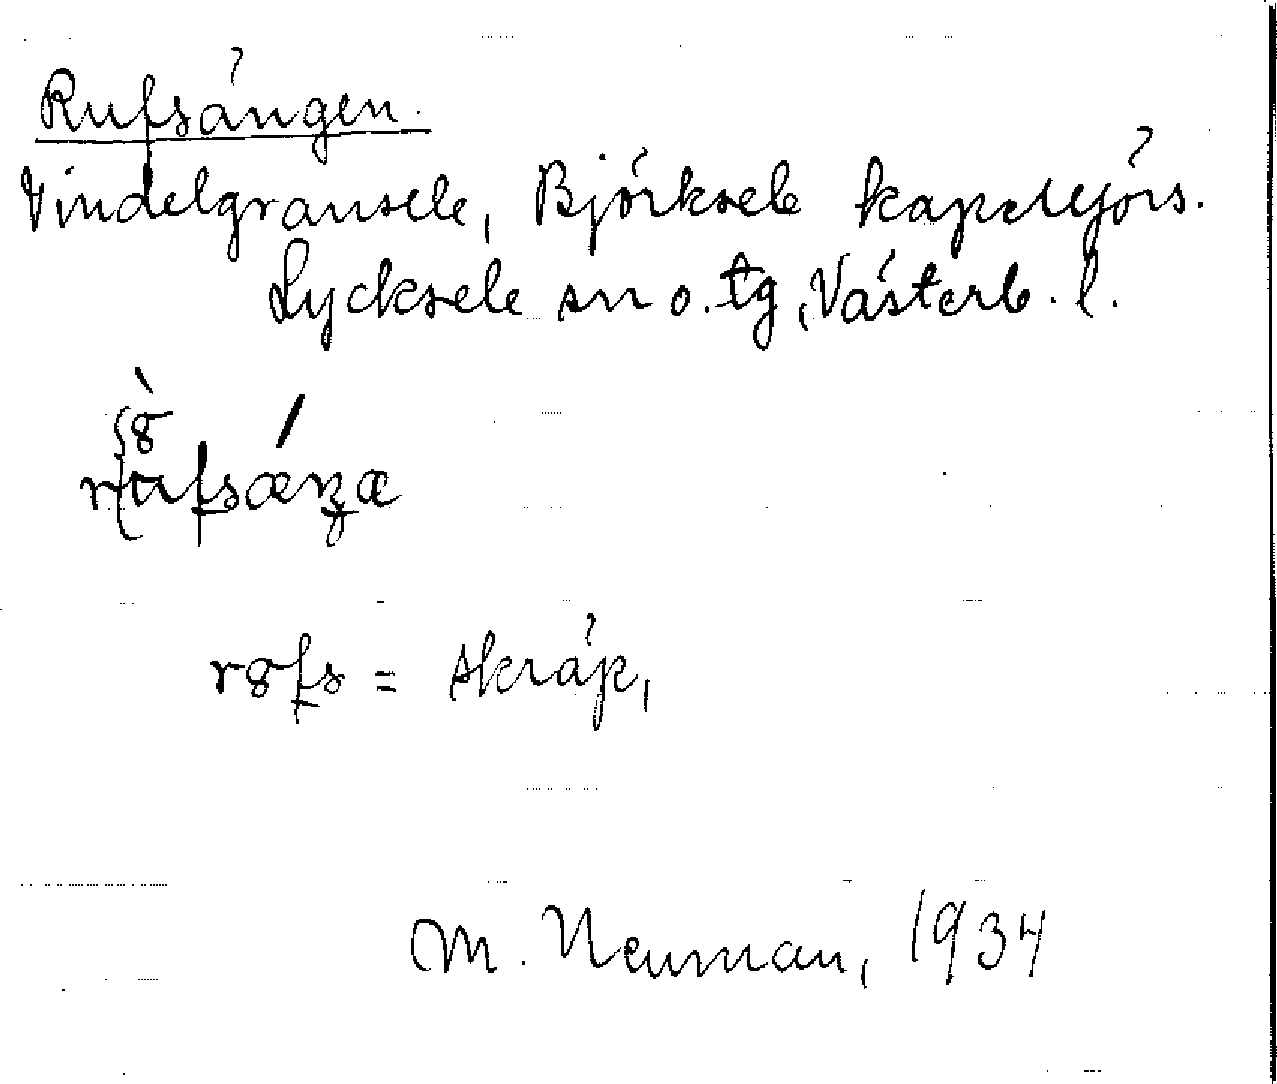 Rufsängen.
Vindelgransele, Björksele kapellförs.
Lycksele sn o. tg, Västerb. l.
rȣfs = skräp,
M. Neuman, 1934